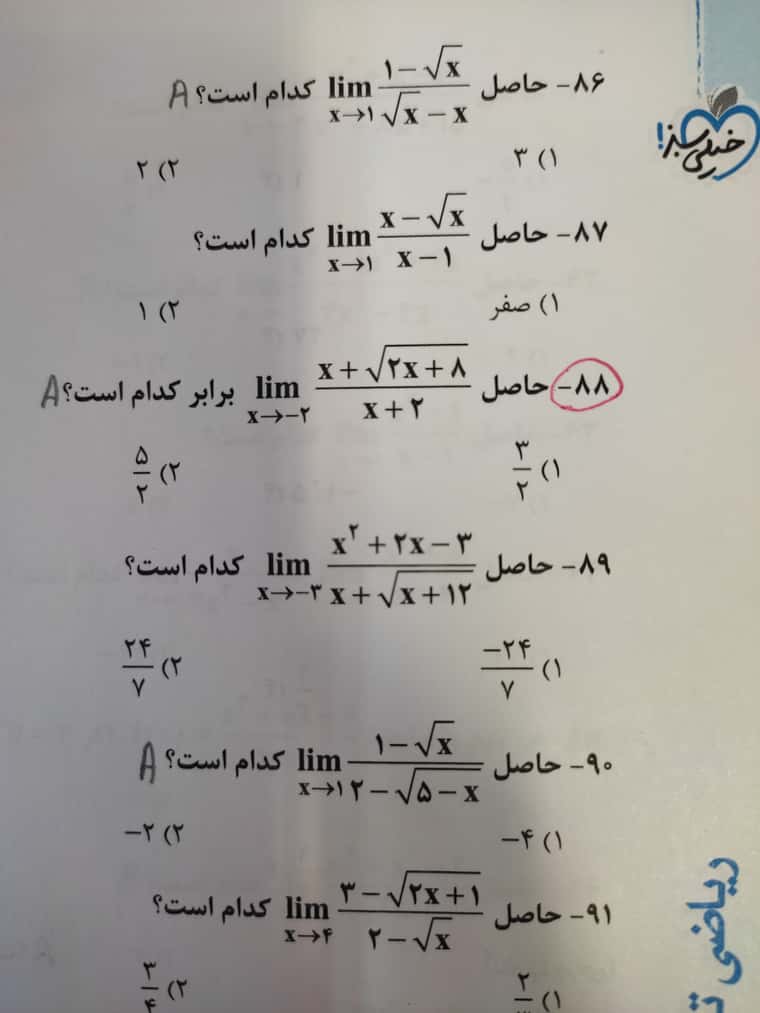 خیلی سبز!
۸۶- حاصل lim x→۱ (۱-√x)/(√x-x) کدام است؟ A
۱) ۳ ۲) ۲
۸۷- حاصل lim x→۱ (x-√x)/(x-۱) کدام است؟
۱) صفر ۲) ۱
۸۸- حاصل lim x→-۲ (x+√(۲x+۸))/(x+۲) برابر کدام است؟ A
۱) ۳/۲ ۲) ۵/۲
۸۹- حاصل lim x→-۳ (x²+۲x-۳)/(x+√(x+۱۲)) کدام است؟
۱) -۲۴/۷ ۲) ۲۴/۷
۹۰- حاصل lim x→۱ (۱-√x)/(۲-√(۵-x)) کدام است؟ A
۱) -۴ ۲) -۲
۹۱- حاصل lim x→۴ (۳-√(۲x+۱))/(۲-√x) کدام است؟
۱) ۲/۳ ۲) ۳/۴
ریاضی